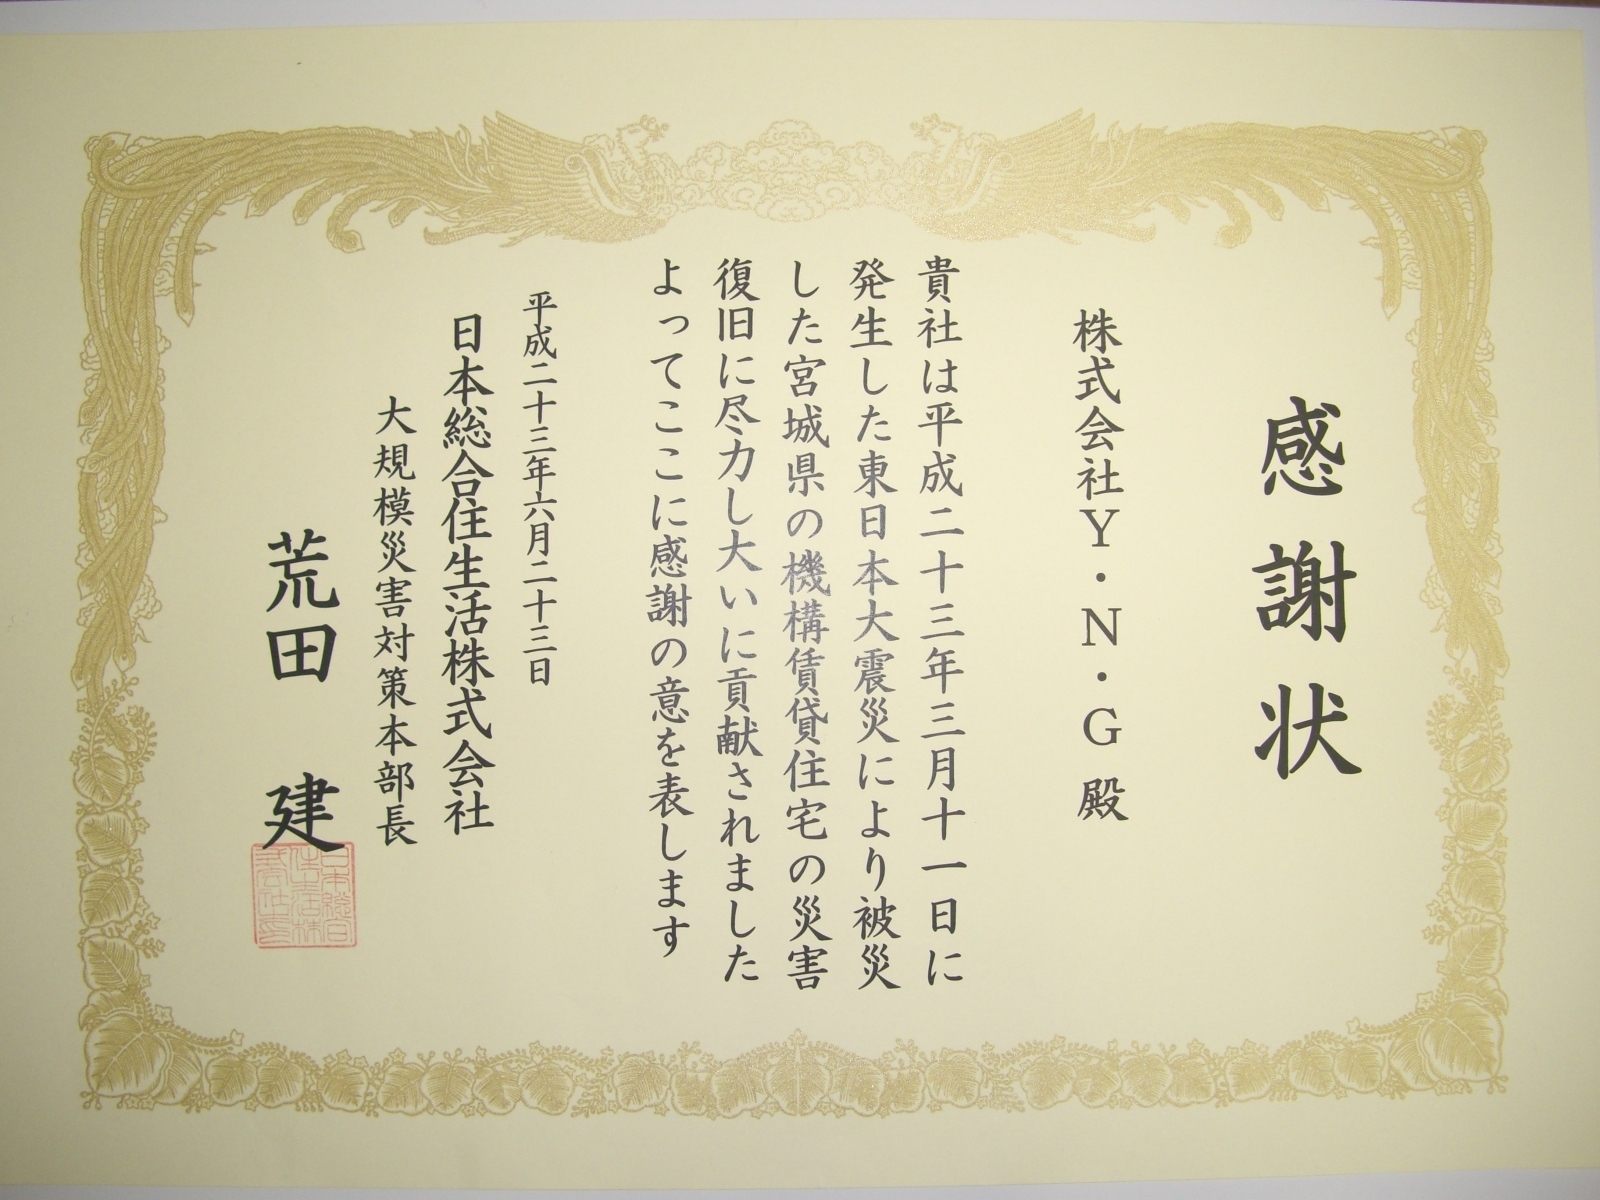 感謝状
株式会社Y・N・G 殿
貴社は平成二十三年三月十一日に
発生した東日本大震災により被災
した宮城県の機構賃貸住宅の災害
復旧に尽力し大いに貢献されました
よってここに感謝の意を表します
平成二十三年六月二十三日
日本総合住生活株式会社
大規模災害対策本部長
荒田 建
日本総合
住生活株
式会社印